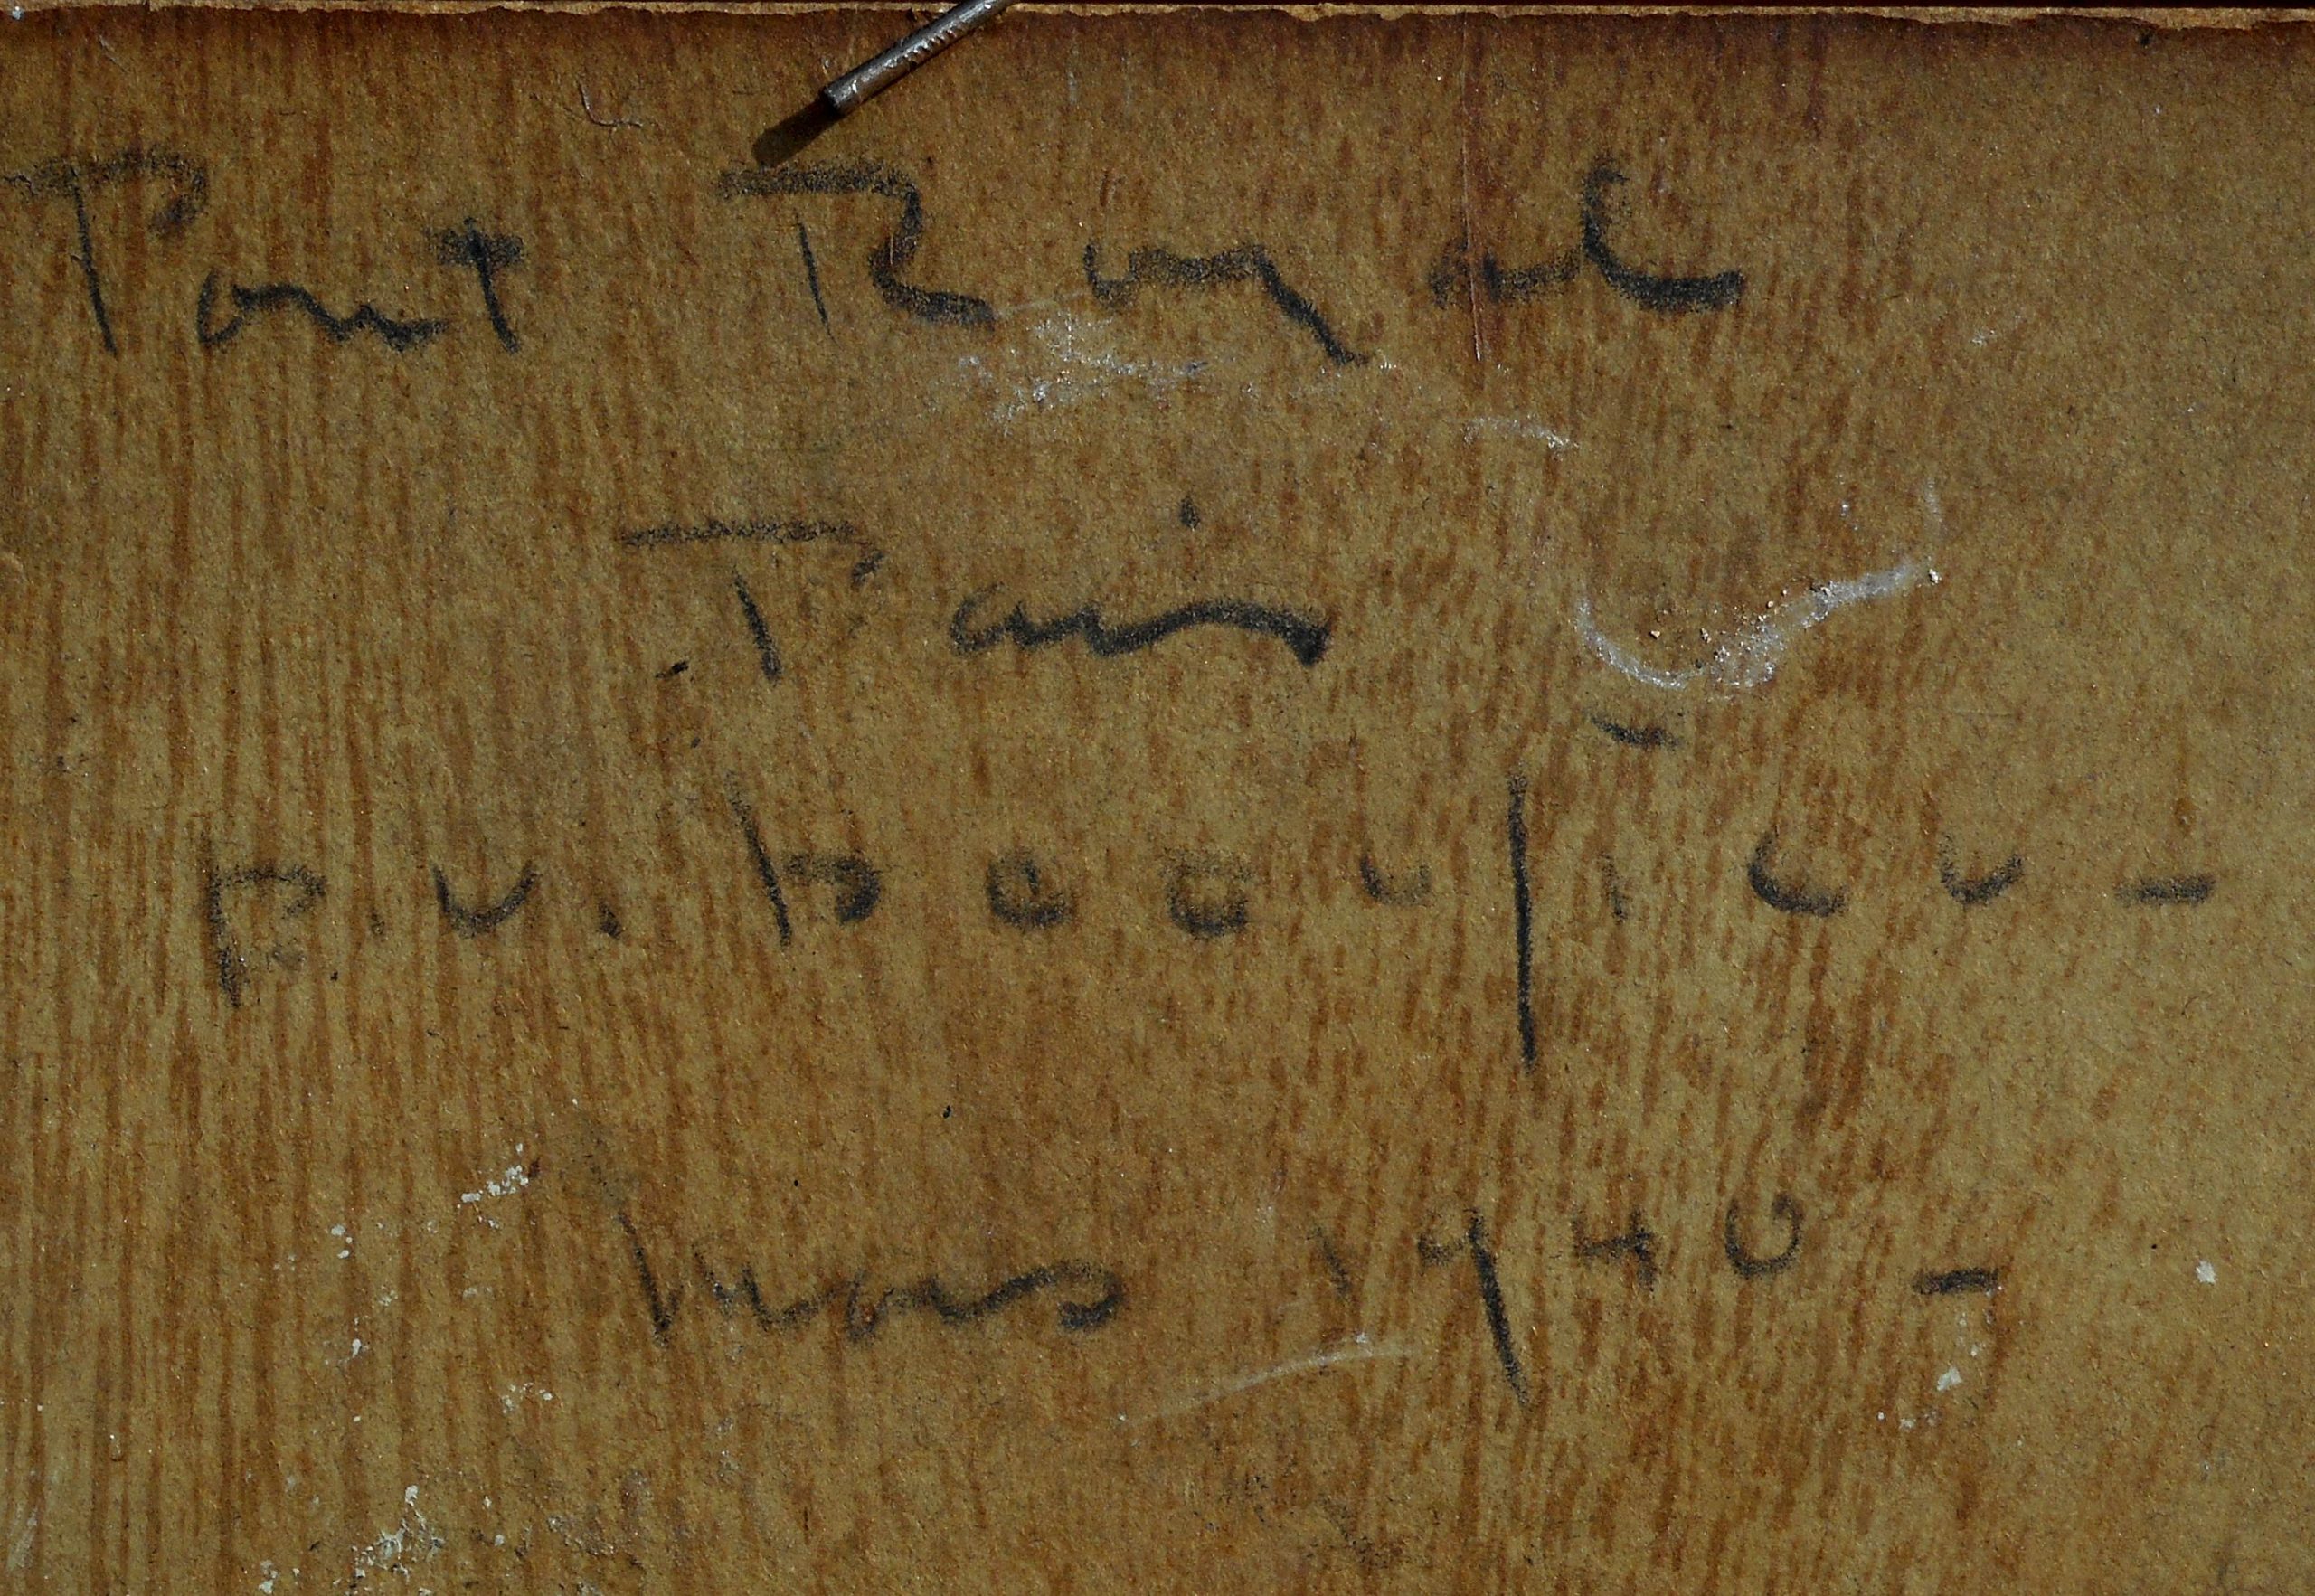 Pont Royal
Paris
p.v. beaulieu -
Mars 1940 -